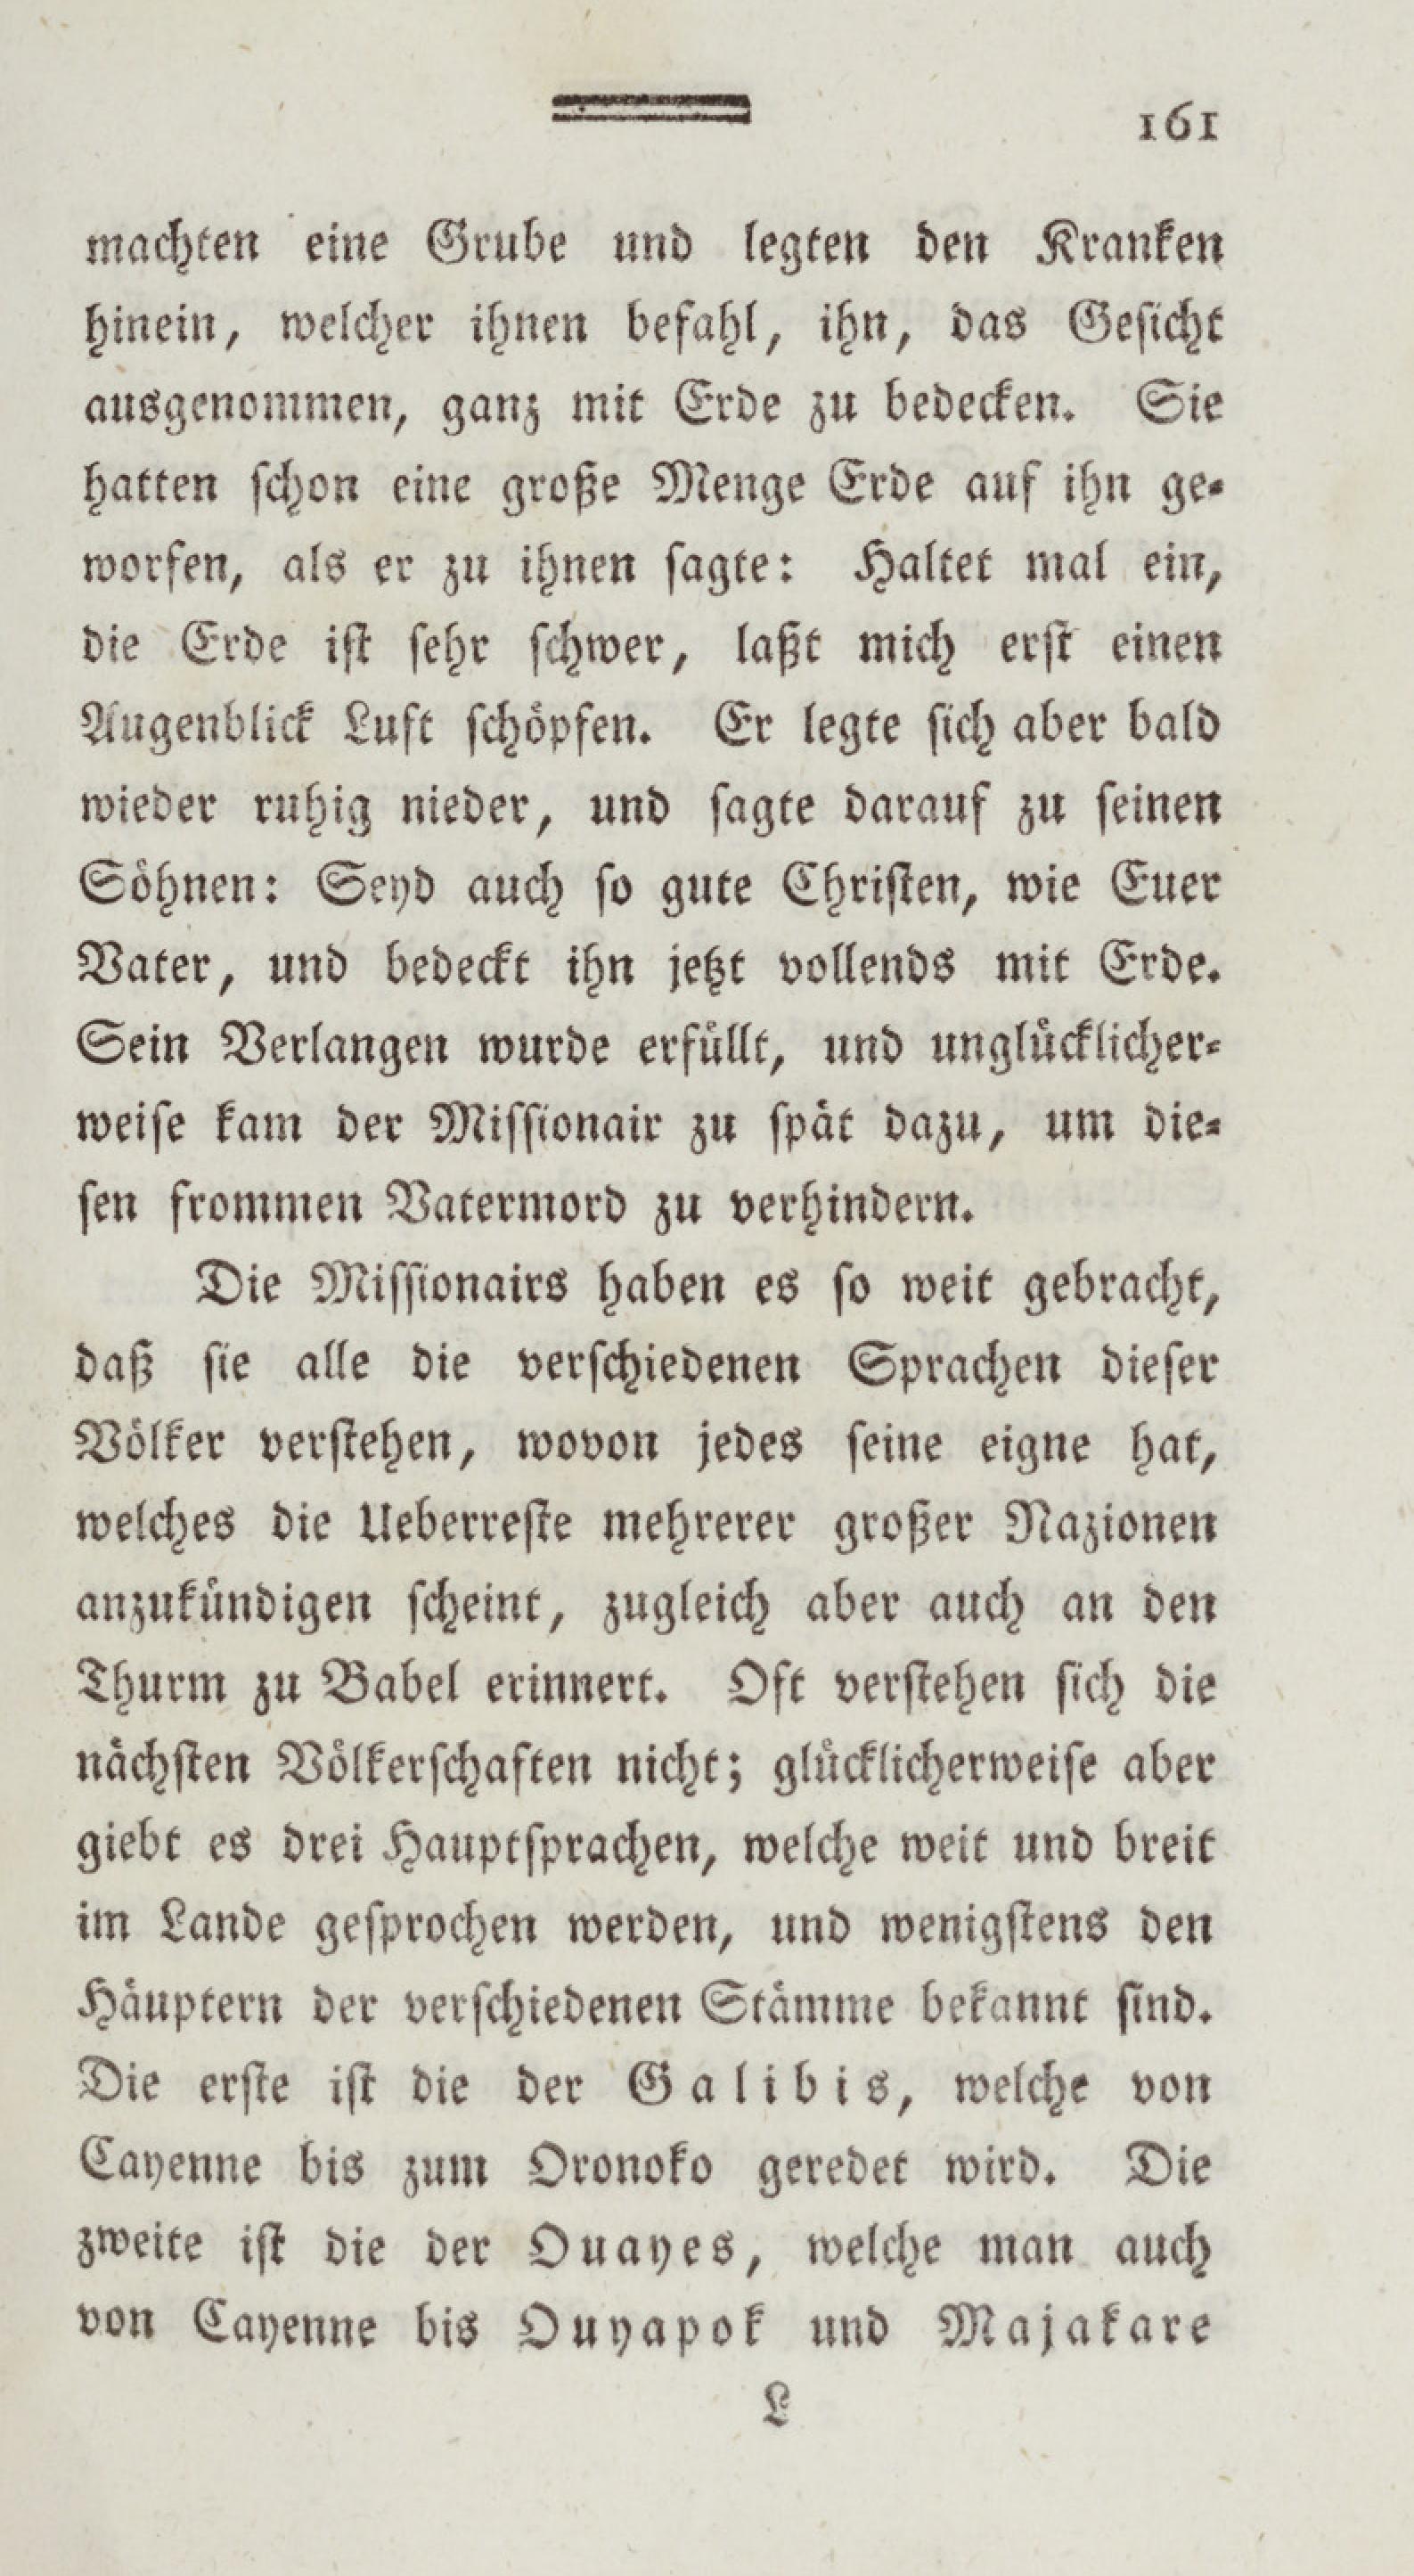 161
machten eine Grube und legten den Kranken
hinein, welcher ihnen befahl, ihn, das Gesicht
ausgenommen, ganz mit Erde zu bedecken. Sie
hatten schon eine große Menge Erde auf ihn ge-
worfen, als er zu ihnen sagte: Haltet mal ein,
die Erde ist sehr schwer, laßt mich erst einen
Augenblick Luft schöpfen. Er legte sich aber bald
wieder ruhig nieder, und sagte darauf zu seinen
Söhnen: Seyd auch so gute Christen, wie Euer
Vater, und bedeckt ihn jetzt vollends mit Erde.
Sein Verlangen wurde erfüllt, und unglücklicher-
weise kam der Missionair zu spät dazu, um die-
sen frommen Vatermord zu verhindern.
Die Missionairs haben es so weit gebracht,
daß sie alle die verschiedenen Sprachen dieser
Völker verstehen, wovon jedes seine eigne hat,
welches die Ueberreste mehrerer großer Nazionen
anzukündigen scheint, zugleich aber auch an den
Thurm zu Babel erinnert. Oft verstehen sich die
nächsten Völkerschaften nicht; glücklicherweise aber
giebt es drei Hauptsprachen, welche weit und breit
im Lande gesprochen werden, und wenigstens den
Häuptern der verschiedenen Stämme bekannt sind.
Die erste ist die der Galibis, welche von
Cayenne bis zum Oronoko geredet wird. Die
zweite ist die der Ouayes, welche man auch
von Cayenne bis Ouyapok und Majakare
L